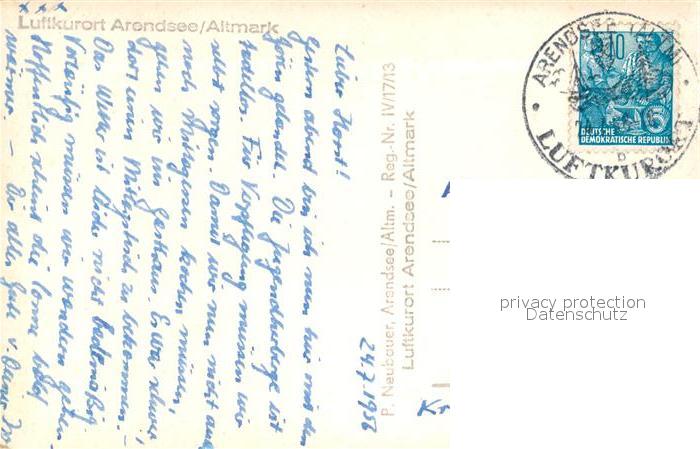 Luftkurort Arendsee/Altmark
24.7.1956
Lieber Horst!
Gestern abend bin ich nun hier mit den
gelandet. Die Jugendherberge ist
Für Verpflegung müssen wir
selbst sorgen. Damit wir nun nicht auch
noch Mittagessen kochen müssen,
gehen wir ins Gasthaus. Es war schwer,
dort einen Mittagstisch zu bekommen. –
Das Wetter ist leider nicht bademäßig.
Vorläufig müssen wir wandern gehen.
Hoffentlich scheint die Sonne bald
wärmer. – Dir alles Gute v. Deiner
P. Neubauer, Arendsee/Altm. – Reg.-Nr. IV/17/13
Luftkurort Arendsee/Altmark
Kr
ARENDSEE (ALTM)
LUFTKURORT
b
10
DEUTSCHE
DEMOKRATISCHE REPUBLIK
5
privacy protection
Datenschutz